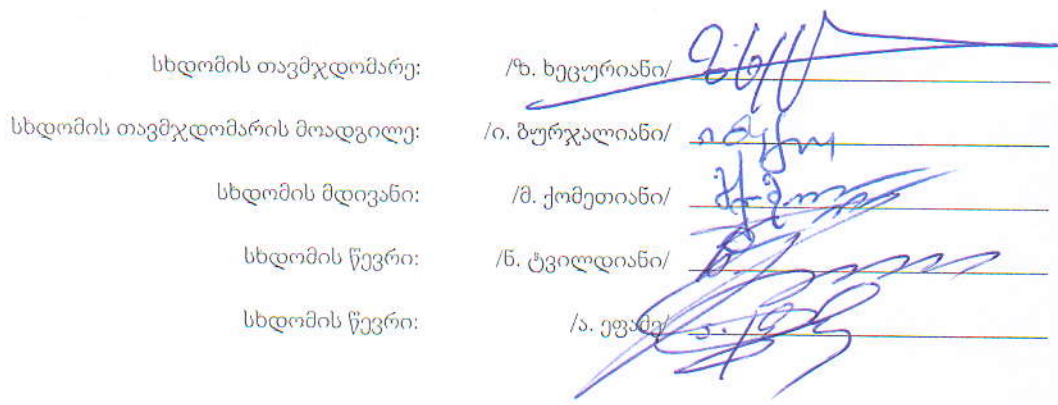 სხდომის თავმჯდომარე: /ზ. ხეცურიანი/
სხდომის თავმჯდომარის მოადგილე: /ი. ბურჯალიანი/
სხდომის მდივანი: /მ. ქომეთიანი/
სხდომის წევრი: /ნ. ტვილდიანი/
სხდომის წევრი: /ა. ეფაძე/